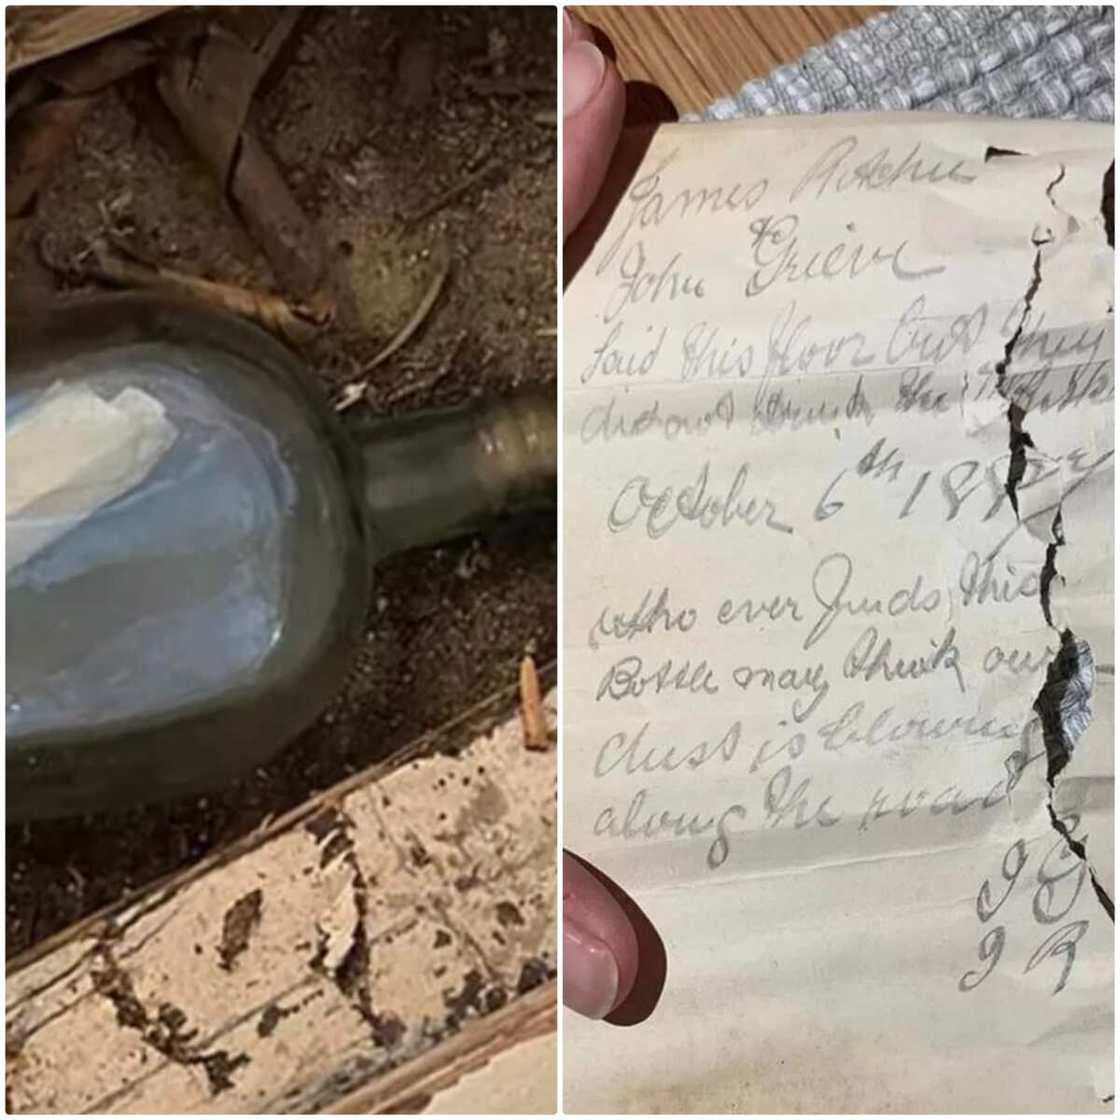 James Ritchie
& John Grieve
laid this floor but they
did not drink the Whisky
October 6th 1887
who ever finds this
Bottle may think our
dust is blowing
along the road
J G
J R